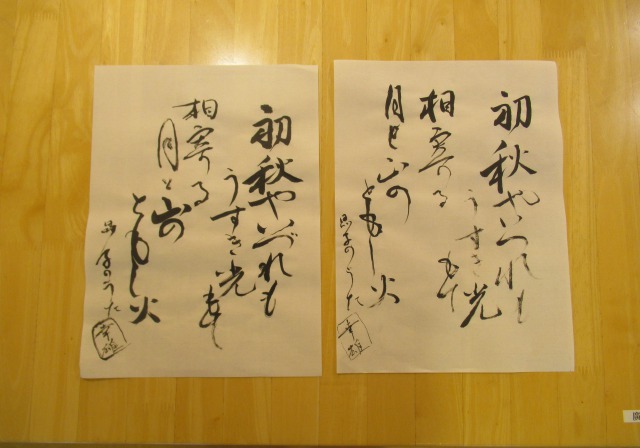 初秋やいづれも
うすき光
もて
相寄る
月と山の
ともし火
晶子のうた
幸雄
初秋やいづれも
うすき光
もて
相寄る
月と山の
ともし火
晶子のうた
幸雄